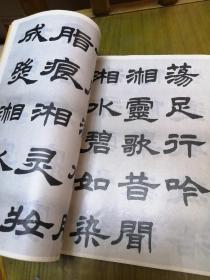 蕩足行吟
湘靈歌昔聞
湘水碧如染
脂痕湘灵妆
成
湘水